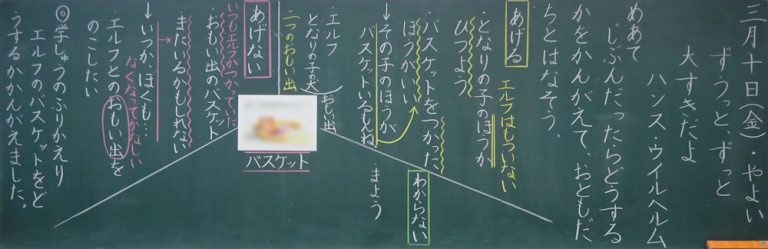 三月十日(金)・やよい
ずうっと、ずっと
大すきだよ
ハンス・ウイルヘルム
めあて
じぶんだったらどうする
かをかんがえて、おともだ
ちとはなそう。
あげる
エルフはもういない
・となりの子のほうが
ひつよう
・バスケットをつかった
ほうがいい
↓その子のほうが
バスケットいるもんね
わからない
まよう
エルフ
となりの子の犬
おもい出
二つのおもい出
バスケット
あげない
いつもエルフがつかっていた
おもい出のバスケット
まだいるかもしれない
↓いつか、ぼくも…
なくなってかなしい
・エルフとのおもい出を
のこしたい
◎学しゅうのふりかえり
エルフのバスケットをど
うするかかんがえました。